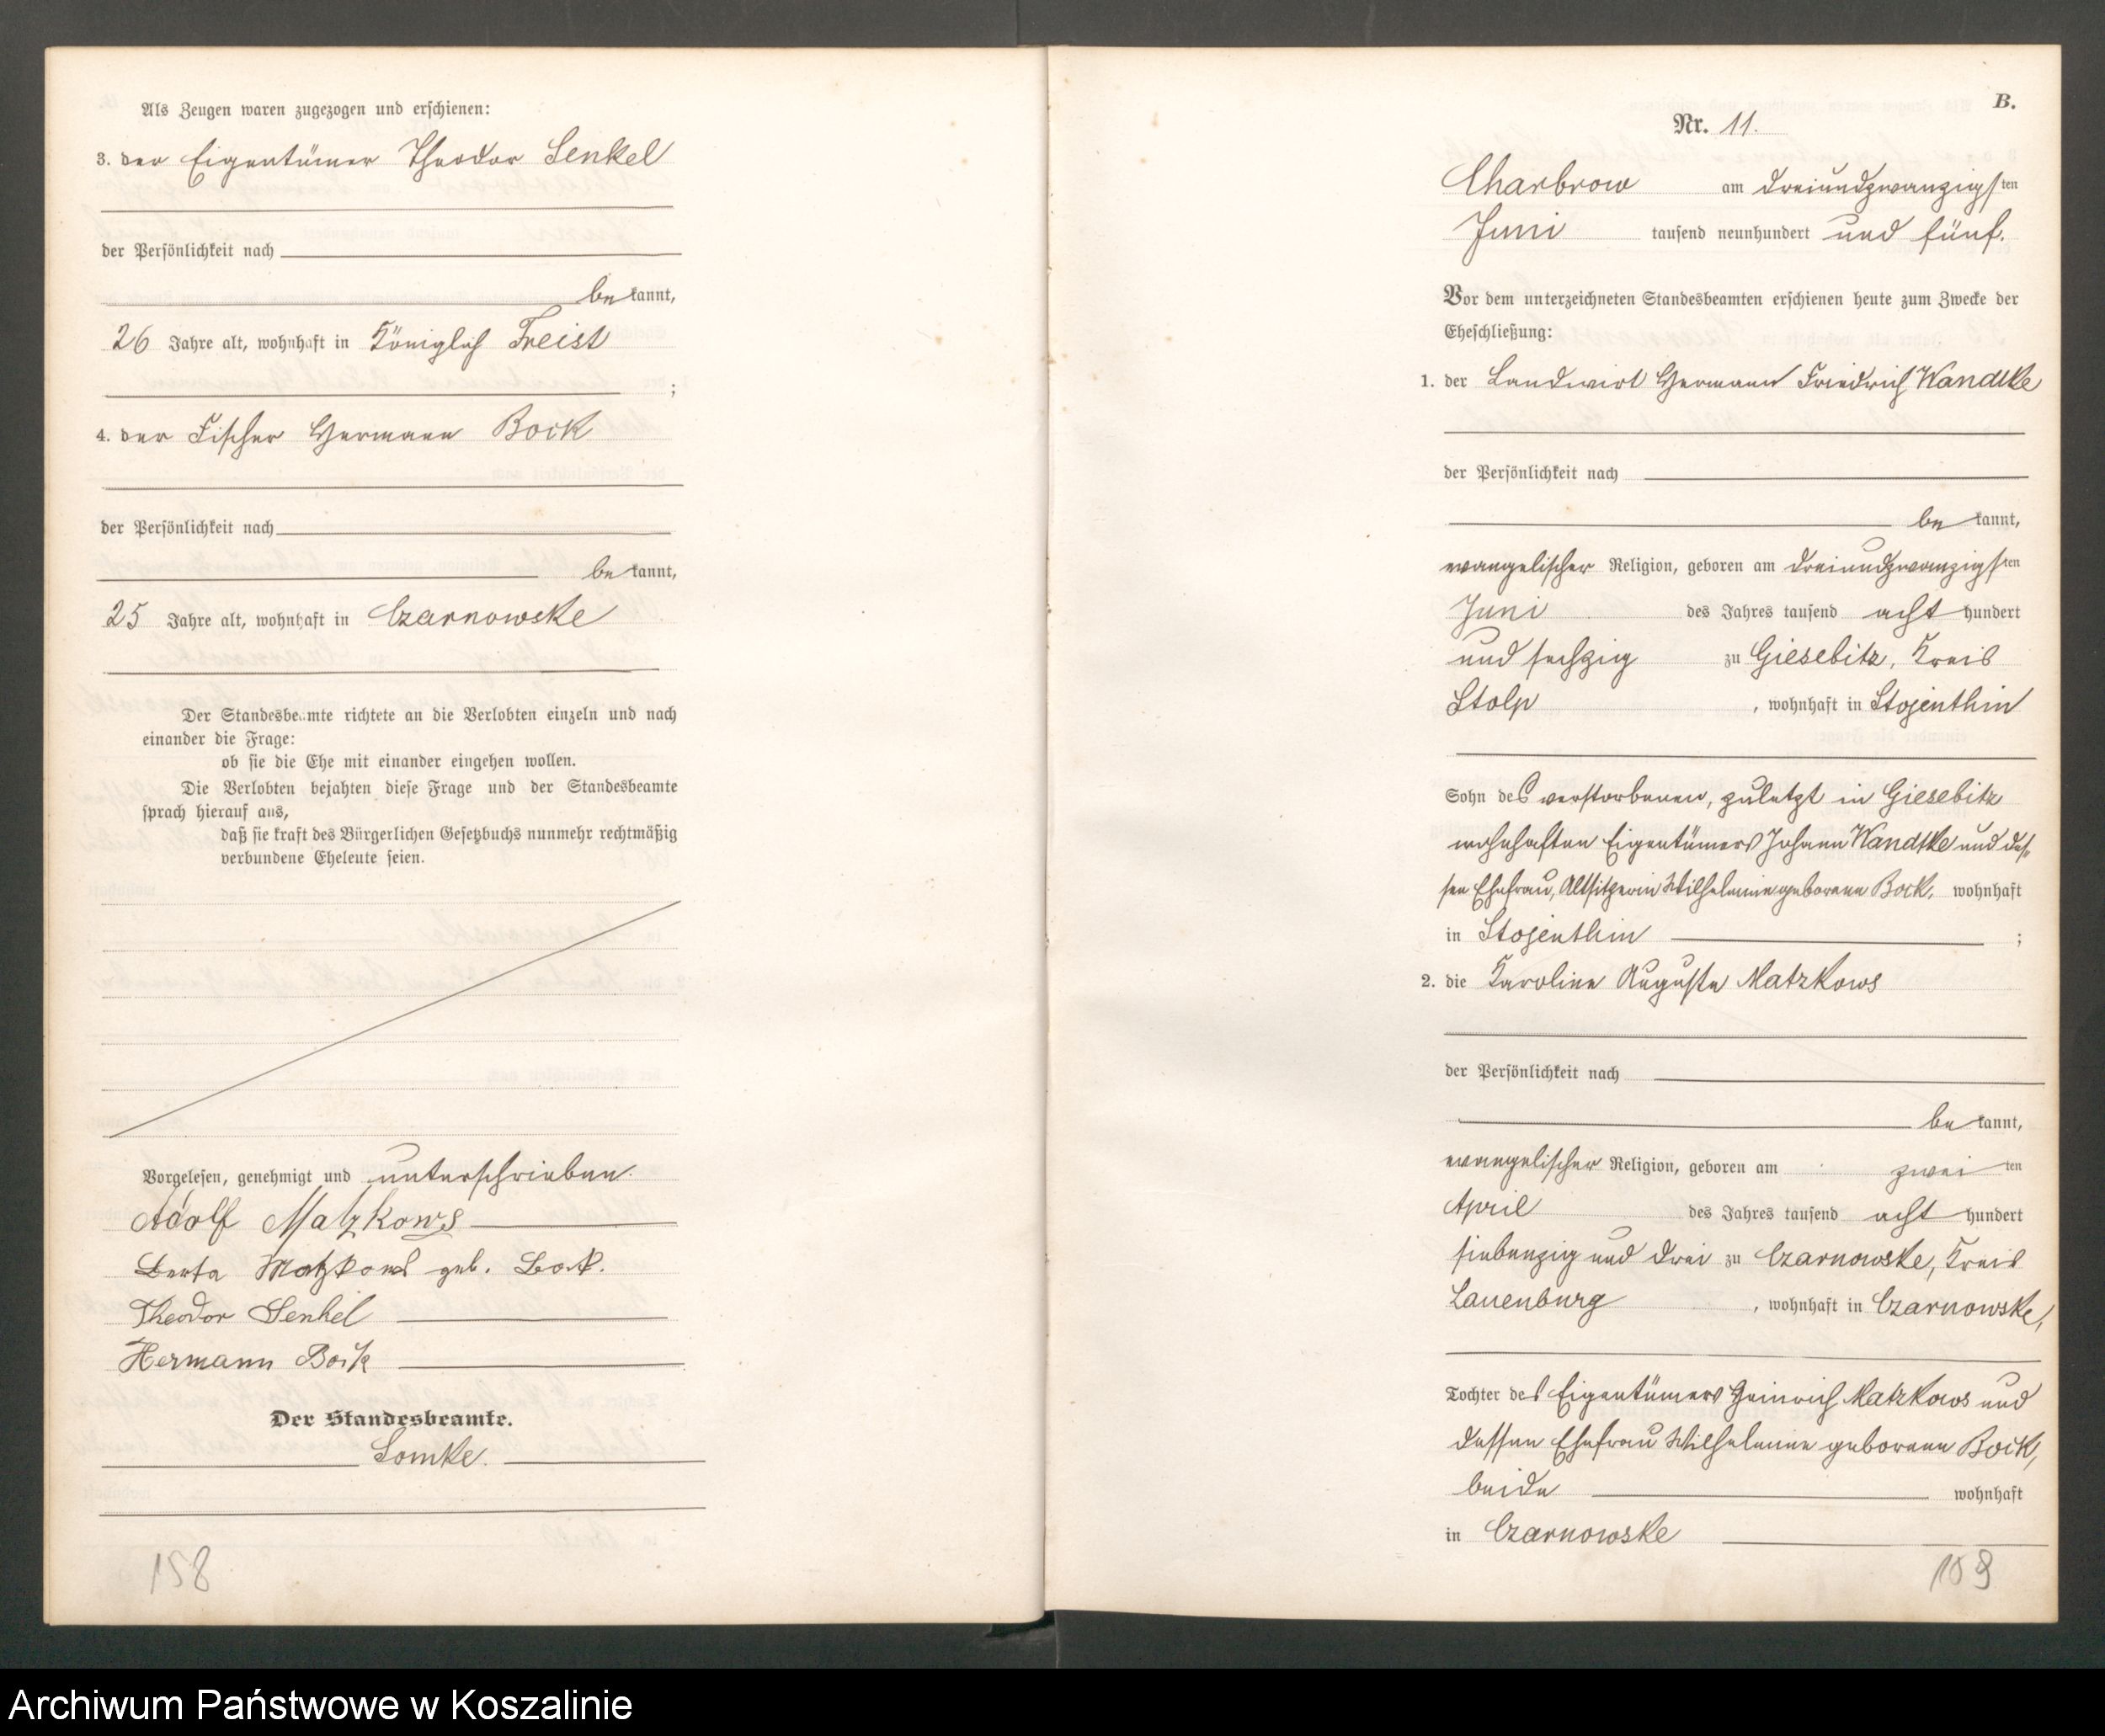 Als Zeugen waren zugezogen und erschienen:
3. der Eigentümer Theodor Senkel
der Persönlichkeit nach
be kannt,
26 Jahre alt, wohnhaft in Königlich Freist
;
4. der Fischer Hermann Bock
der Persönlichkeit nach
be kannt,
25 Jahre alt, wohnhaft in Czarnowske
Der Standesbeamte richtete an die Verlobten einzeln und nach
einander die Frage:
ob sie die Ehe mit einander eingehen wollen.
Die Verlobten bejahten diese Frage und der Standesbeamte
sprach hierauf aus,
daß sie kraft des Bürgerlichen Gesetzbuchs nunmehr rechtmäßig
verbundene Eheleute seien.
Vorgelesen, genehmigt und unterschrieben.
Adolf Matzkows
Berta Matzkows geb. Bock.
Theodor Senkel
Hermann Bock
Der Standesbeamte.
Lomke.
158
B.
Nr. 11.
Charbrow am dreiundzwanzigsten
Juni tausend neunhundert und fünf.
Vor dem unterzeichneten Standesbeamten erschienen heute zum Zwecke der
Eheschließung:
1. der Landwirt Hermann Friedrich Wandtke
der Persönlichkeit nach
be kannt,
evangelischer Religion, geboren am dreiundzwanzigsten
Juni des Jahres tausend acht hundert
und sechzig zu Giesebitz, Kreis
Stolp, wohnhaft in Stojenthin
Sohn des verstorbenen, zuletzt in Giesebitz
wohnhaften Eigentümers Johann Wandtke und des-
sen Ehefrau, Altsitzerin Wilhelmine geborene Bock, wohnhaft
in Stojenthin ;
2. die Karoline Auguste Matzkows
der Persönlichkeit nach
be kannt,
evangelischer Religion, geboren am zwei ten
April des Jahres tausend acht hundert
siebenzig und drei zu Czarnowske, Kreis
Lauenburg, wohnhaft in Czarnowske,
Tochter des Eigentümers Heinrich Matzkows und
dessen Ehefrau Wilhelmine geborene Bock,
beide wohnhaft
in Czarnowske
159
Archiwum Państwowe w Koszalinie